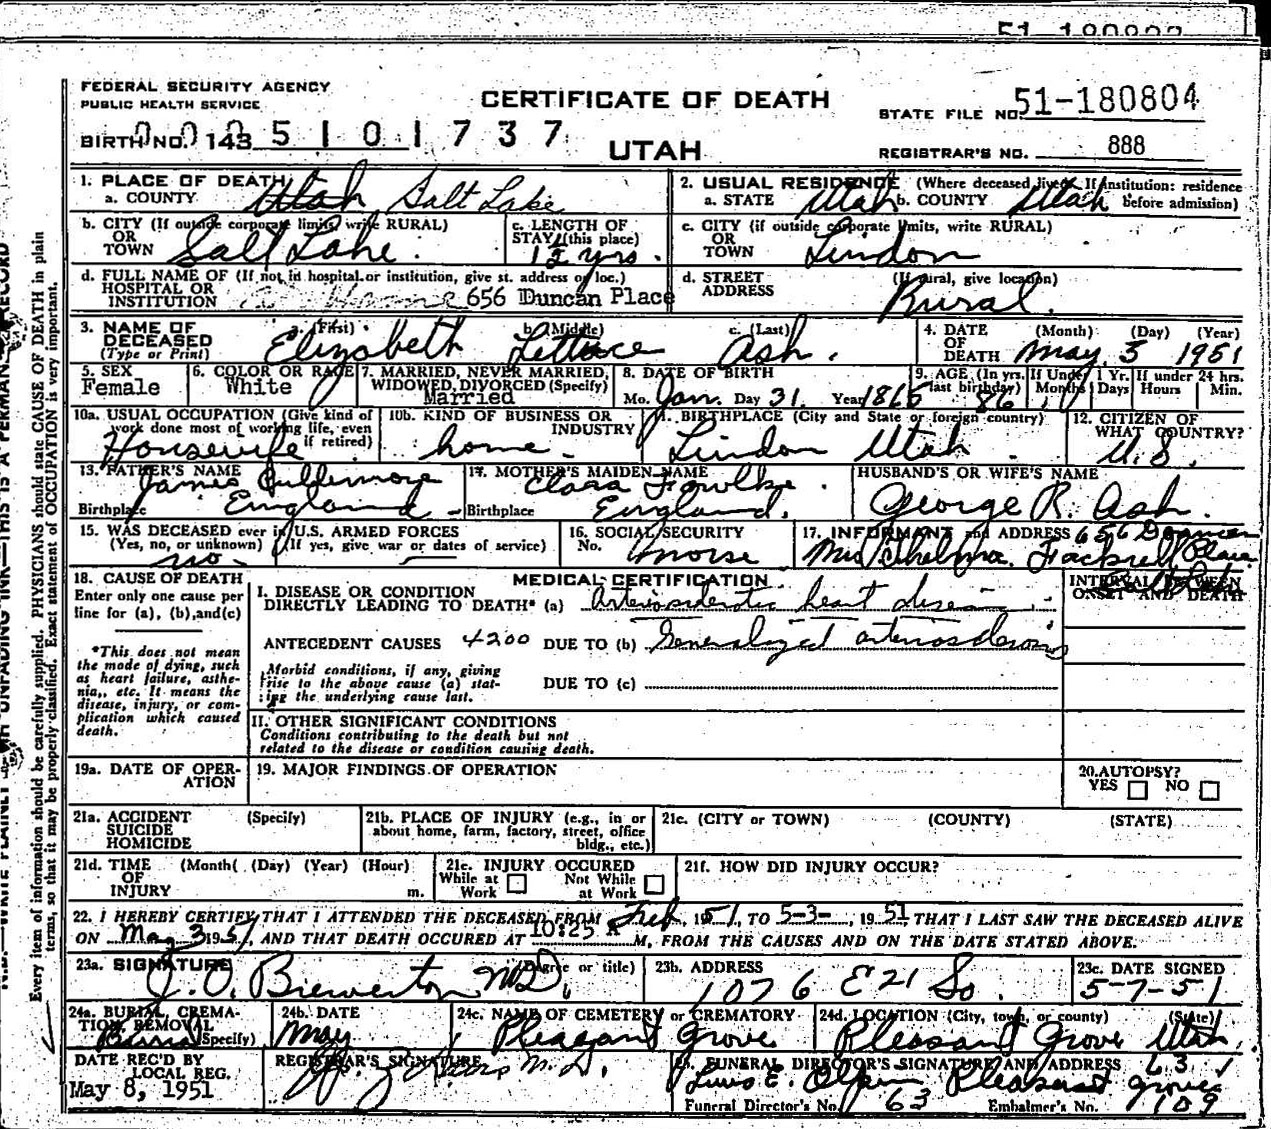 FEDERAL SECURITY AGENCY
PUBLIC HEALTH SERVICE
CERTIFICATE OF DEATH
STATE FILE NO. 51-180804
BIRTH NO. 143 5 1 0 1 7 3 7
UTAH
REGISTRAR'S NO. 888
1. PLACE OF DEATH
a. COUNTY Utah Salt Lake
2. USUAL RESIDENCE (Where deceased lived. If institution: residence before admission)
a. STATE Utah b. COUNTY Utah
b. CITY (If outside corporate limits, write RURAL) OR TOWN Salt Lake
c. LENGTH OF STAY (this place) yrs.
c. CITY (if outside corporate limits, write RURAL) OR TOWN Lindon
d. FULL NAME OF (If not in hospital or institution, give st. address or loc.) HOSPITAL OR INSTITUTION 656 Duncan Place
d. STREET ADDRESS (If rural, give location) Rural
3. NAME OF DECEASED (Type or Print)
a. (First) Elizabeth b. (Middle) c. (Last) Ash.
4. DATE OF DEATH (Month) (Day) (Year) May 3 1951
5. SEX Female
6. COLOR OR RACE White
7. MARRIED, NEVER MARRIED, WIDOWED, DIVORCED (Specify) Married
8. DATE OF BIRTH Mo. Jan. Day 31. Year 1865
9. AGE (In yrs. last birthday) 86 If Under 1 Yr. Months Days If under 24 hrs. Hours Min.
10a. USUAL OCCUPATION (Give kind of work done most of working life, even if retired) Housewife
10b. KIND OF BUSINESS OR INDUSTRY home.
11. BIRTHPLACE (City and State or foreign country) Lindon Utah
12. CITIZEN OF WHAT COUNTRY? U.S.
13. FATHER'S NAME James Cullimore
Birthplace England
14. MOTHER'S MAIDEN NAME Clara Fowlke
Birthplace England.
HUSBAND'S OR WIFE'S NAME George R. Ash.
15. WAS DECEASED ever in U.S. ARMED FORCES (Yes, no, or unknown) (If yes, give war or dates of service) no
16. SOCIAL SECURITY No.
17. INFORMANT and ADDRESS 656
Mrs Thelma Fackrell Place
18. CAUSE OF DEATH
Enter only one cause per line for (a), (b), and (c)
*This does not mean the mode of dying, such as heart failure, asthenia, etc. It means the disease, injury, or complication which caused death.
MEDICAL CERTIFICATION
INTERVAL BETWEEN ONSET AND DEATH
I. DISEASE OR CONDITION DIRECTLY LEADING TO DEATH* (a) Arteriosclerotic heart disease
ANTECEDENT CAUSES 4200 DUE TO (b) Generalized arteriosclerosis
Morbid conditions, if any, giving rise to the above cause (a) stating the underlying cause last.
DUE TO (c)
II. OTHER SIGNIFICANT CONDITIONS
Conditions contributing to the death but not related to the disease or condition causing death.
19a. DATE OF OPERATION
19. MAJOR FINDINGS OF OPERATION
20. AUTOPSY? YES NO
21a. ACCIDENT SUICIDE HOMICIDE (Specify)
21b. PLACE OF INJURY (e.g., in or about home, farm, factory, street, office bldg., etc.)
21c. (CITY or TOWN) (COUNTY) (STATE)
21d. TIME OF INJURY (Month) (Day) (Year) (Hour) m.
21e. INJURY OCCURED While at Work Not While at Work
21f. HOW DID INJURY OCCUR?
22. I HEREBY CERTIFY THAT I ATTENDED THE DECEASED FROM Feb, 1951, TO 5-3-, 1951 THAT I LAST SAW THE DECEASED ALIVE
ON May 3 1951, AND THAT DEATH OCCURED AT 10:25 A M, FROM THE CAUSES AND ON THE DATE STATED ABOVE.
23a. SIGNATURE (Degree or title) J. O. Brewerton MD.
23b. ADDRESS 1076 E 21 So.
23c. DATE SIGNED 5-7-51
24a. BURIAL, CREMATION, REMOVAL (Specify) Burial
24b. DATE May
24c. NAME OF CEMETERY or CREMATORY Pleasant Grove
24d. LOCATION (City, town, or county) (State) Pleasant Grove Utah.
DATE REC'D BY LOCAL REG. May 8, 1951
REGISTRAR'S SIGNATURE M.D.
25. FUNERAL DIRECTOR'S SIGNATURE AND ADDRESS
E. Olpin Pleasant Grove
Funeral Director's No. 63 Embalmer's No. 109
Every item of information should be carefully supplied. PHYSICIANS should state CAUSE OF DEATH in plain
terms, so that it may be properly classified. Exact statement of OCCUPATION is very important.